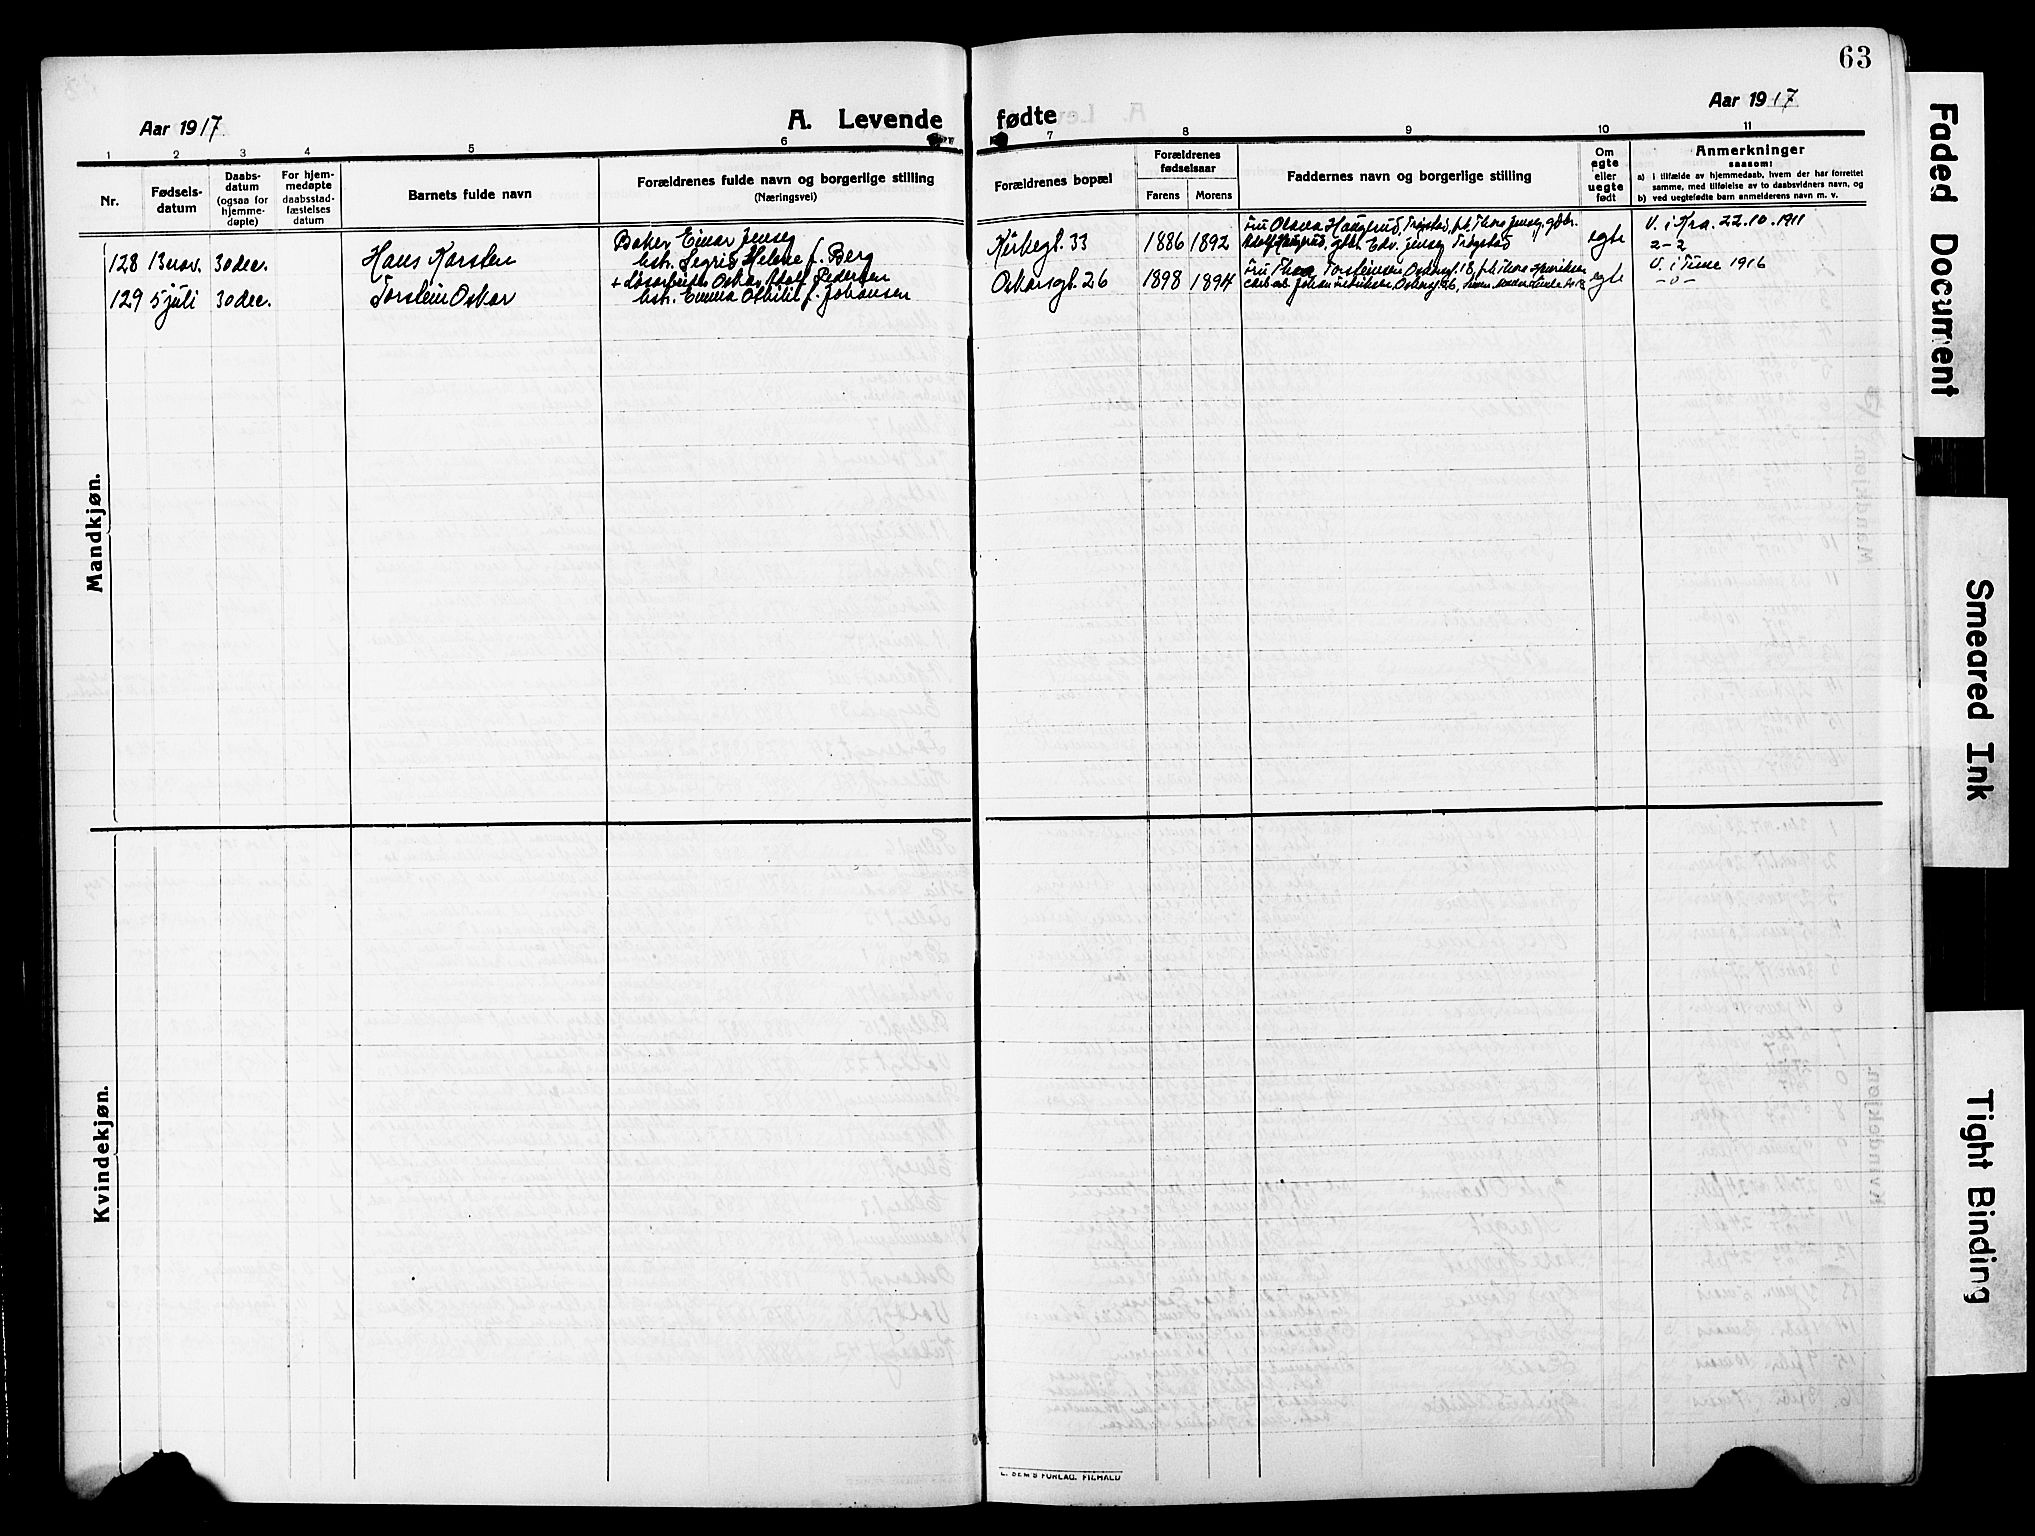 63
Aar 1917
A. Levende
fødte
Aar 1917
1 2 3 4 5 6 7 8 9 10 11
Nr.
Fødsels-
datum
Daabs-
datum
(ogsaa for
hjemme-
døpte)
For hjem-
medøpte
daabsstad-
fæstelses
datum
Barnets fulde navn
Forældrenes fulde navn og borgerlige stilling
(Næringsvei)
Forældrenes bopæl
Forældrenes
fødselsaar
Farens
Morens
Faddernes navn og borgerlige stilling
Om
egte
eller
uegte
født
Anmerkninger
saasom:
a) i tilfælde av hjemmedaab, hvem der har forrettet
samme, med tilføielse av to daabsvidners navn, og
b) ved uegtefødte barn anmelderens navn m. v.
Mandkjøn.
128 13 nov. 30 dec. Hans Karsten
Baker Einar Jensen
hstr. Segrid Helene f. Berg
Kirkegt. 33 1886 1892
Fru Olava Haugerud, Trøgstad, frk. Thora Jensen, gbr.
Adolf Haugerud, gbr. Edv. Jensen Trøgstad
egte
V. i Kra. 22.10.1911
2-2
129 5 juli 30 dec. Torstein Oskar
+ Løsarbeider Oskar Adolf Pedersen
hstr. Emma Othilie f. Johansen
Oskarsgt. 26 1898 1894
Fru Thora Torsteinsen Oskarsgt. 18, frk. Thora Henriksen
Johan Oskarsgt. 26,
egte
V. i Tune 1916
-0-
Kvindekjøn.
E. SEM'S FORLAG. FR.HALD
Faded Document
Smeared Ink
Tight Binding